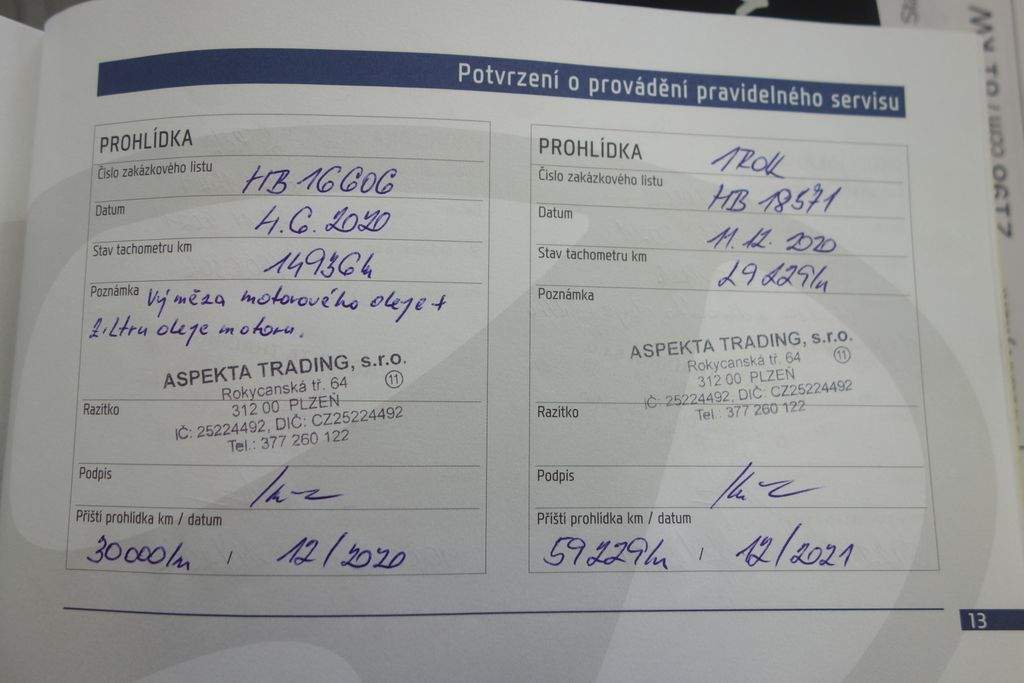 Potvrzení o provádění pravidelného servisu
PROHLÍDKA
Číslo zakázkového listu HB 16606
Datum 4.6.2020
Stav tachometru km 14936 km
Poznámka Výměza motorového oleje +
filtru oleje motoru.
ASPEKTA TRADING, s.r.o.
Rokycanská tř. 64 11
312 00 PLZEŇ
Razítko
IČ: 25224492, DIČ: CZ25224492
Tel.: 377 260 122
Podpis
Příští prohlídka km / datum
30000 km / 12/2020
PROHLÍDKA 1ROK
Číslo zakázkového listu HB 18571
Datum 11.12. 2020
Stav tachometru km 29229 km
Poznámka
ASPEKTA TRADING, s.r.o.
Rokycanská tř. 64 11
312 00 PLZEŇ
IČ: 25224492, DIČ: CZ25224492
Razítko
Tel.: 377 260 122
Podpis
Příští prohlídka km / datum
59229 km / 12/2021
13